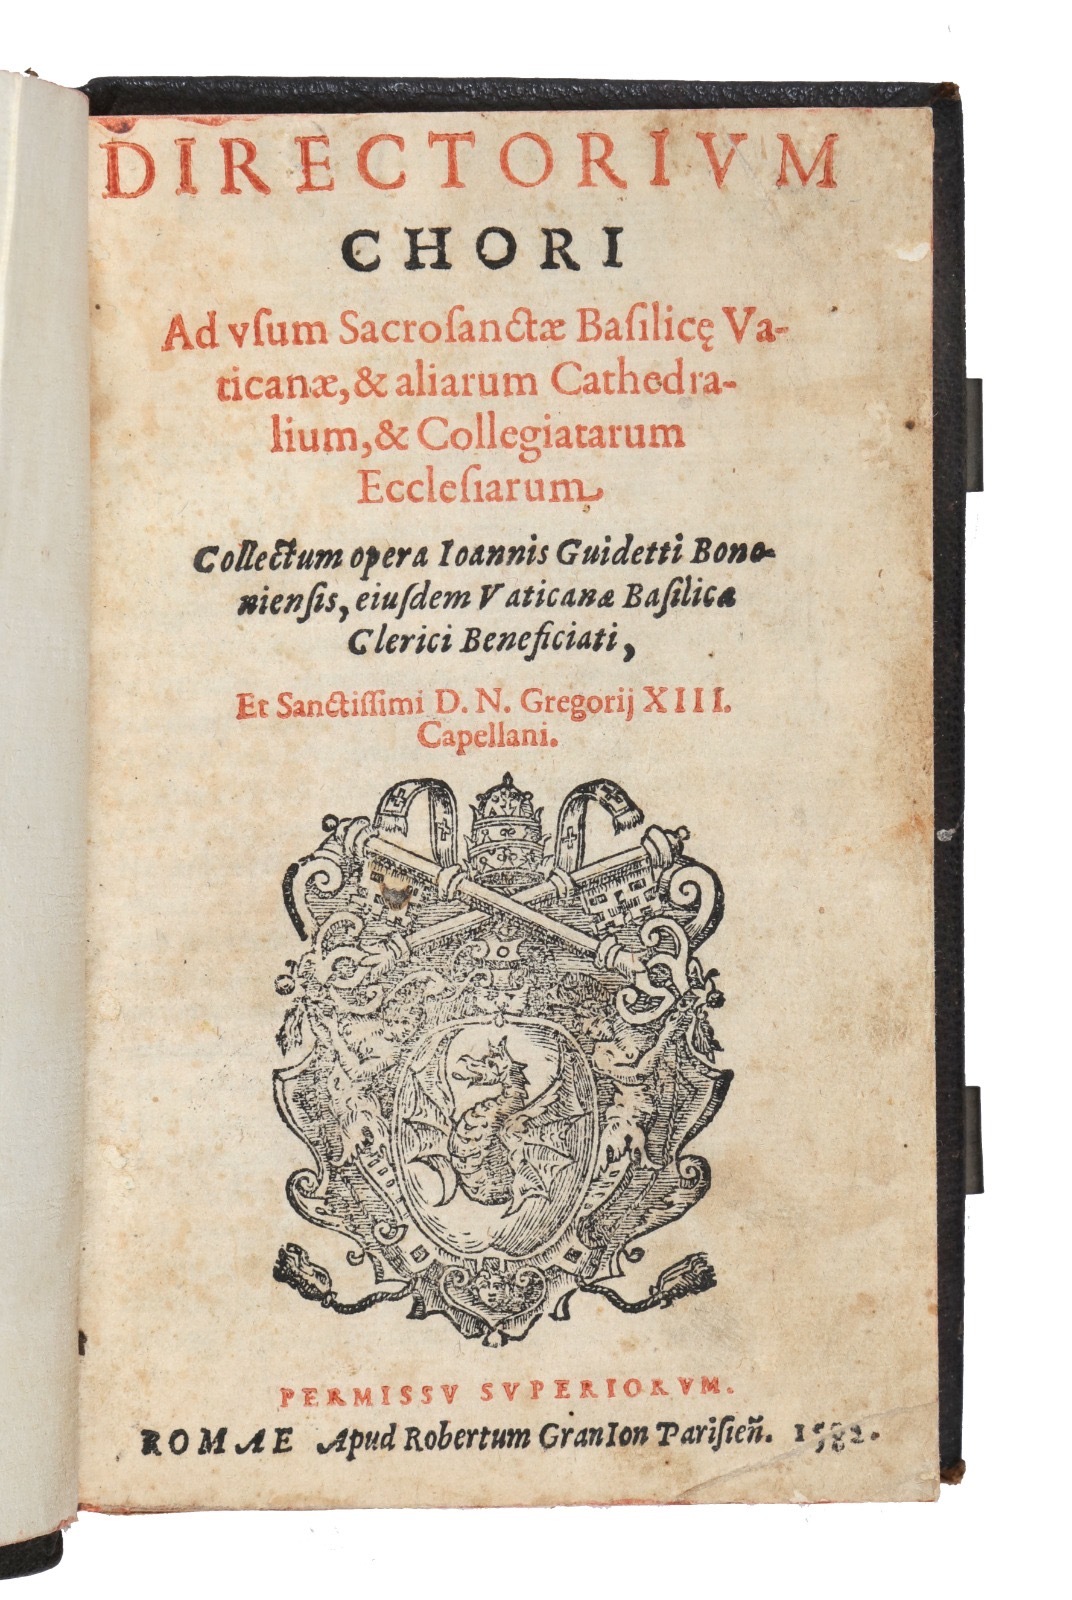 DIRECTORIVM
CHORI
Ad vſum Sacroſanctæ Baſilicę Va-
ticanæ, & aliarum Cathedra-
lium, & Collegiatarum
Ecclesiarum
Collectum opera Ioannis Guidetti Bono-
niensis, eiuſdem Vaticanæ Baſilicæ
Clerici Beneficiati,
Et Sanctiſſimi D. N. Gregorij XIII.
Capellani.
PERMISSV SVPERIORVM.
ROMAE Apud Robertum GranIon Pariſieñ. 1582.